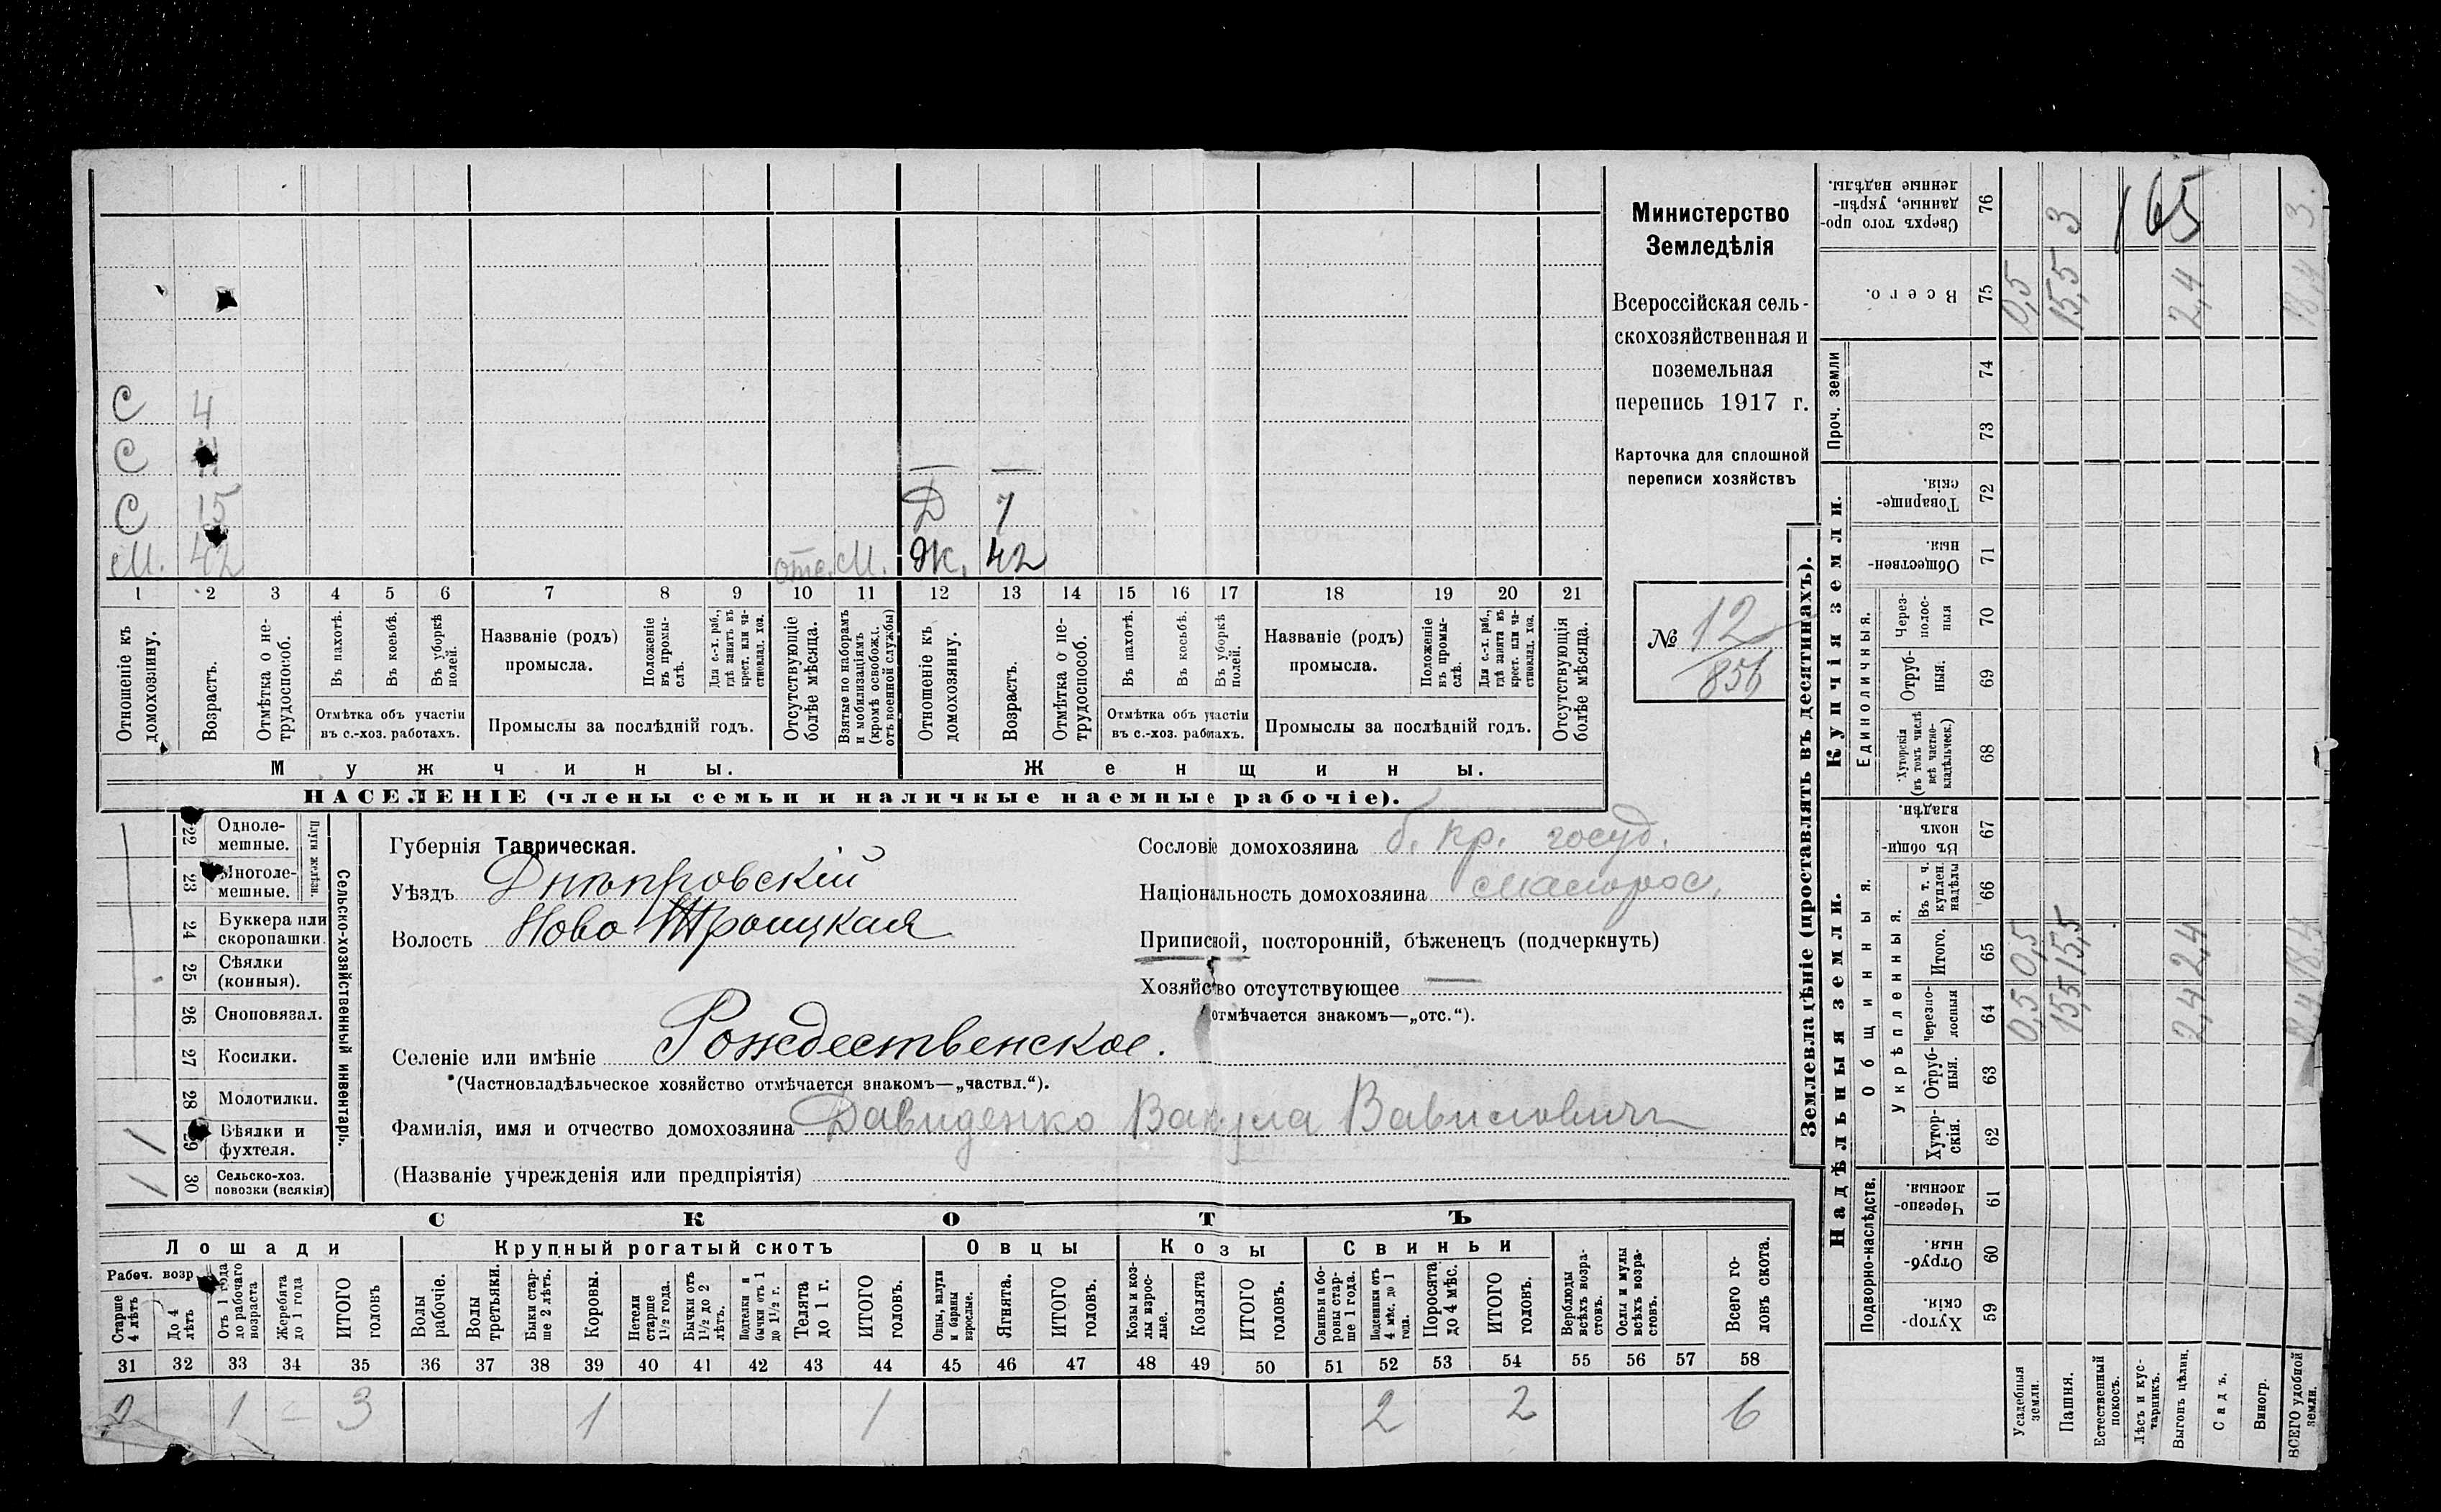 Министерство
Земледѣлія
Всероссійская сель-
скохозяйственная и
поземельная
перепись 1917 г.
Карточка для сплошной
переписи хозяйствъ
№ 12
856
С 4
С
С 15 Д 7
М. 42 отс. М. Ж. 42
1 2 3 4 5 6 7 8 9 10 11 12 13 14 15 16 17 18 19 20 21
Отношеніе къ домохозяину.
Возрастъ.
Отмѣтка о не-трудоспособ.
Въ пахотѣ.
Въ косьбѣ.
Въ уборкѣ полей.
Отмѣтка объ участіи
въ с.-хоз. работахъ.
Названіе (родъ)
промысла.
Положеніе въ промы-слѣ.
Для с.-х. раб., гдѣ занятъ въ крест. или ча-стновлад. хоз.
Промыслы за послѣдній годъ.
Отсутствующіе болѣе мѣсяца.
Взятые по наборамъ и мобилизаціямъ (кромѣ освобожд. отъ военной службы)
Отношеніе къ домохозяину.
Возрастъ.
Отмѣтка о не-трудоспособ.
Въ пахотѣ.
Въ косьбѣ.
Въ уборкѣ полей.
Отмѣтка объ участіи
въ с.-хоз. работахъ.
Названіе (родъ)
промысла.
Положеніе въ промы-слѣ.
Для с.-х. раб., гдѣ занята въ крест. или ча-стновлад. хоз.
Промыслы за послѣдній годъ.
Отсутствующія болѣе мѣсяца.
Мужчины. Женщины.
НАСЕЛЕНІЕ (члены семьи и наличные наемные рабочіе).
Сельско-хозяйственный инвентарь.
Плуги желѣзн.
22 Одноле-мешные.
23 Многоле-мешные.
24 Буккера или скоропашки.
25 Сѣялки (конныя).
26 Сноповязал.
27 Косилки.
28 Молотилки.
29 Вѣялки и фухтеля. 1
30 Сельско-хоз. повозки (всякія) 1
Губернія Таврическая.
Уѣздъ Днѣпровскій
Волость Ново Троицкая
Селеніе или имѣніе Рождественское.
(Частновладѣльческое хозяйство отмѣчается знакомъ—„частвл.“).
Фамилія, имя и отчество домохозяина Давиденко Вакула Вавиловичъ
(Названіе учрежденія или предпріятія)
Сословіе домохозяина б. кр. госуд.
Національность домохозяина малорос.
Приписной, посторонній, бѣженецъ (подчеркнуть)
Хозяйство отсутствующее —
(отмѣчается знакомъ—„отс.“).
СКОТЪ
Лошади Крупный рогатый скотъ Овцы Козы Свиньи
Рабоч. возр.
Старше 4 лѣтъ
До 4 лѣтъ
Отъ 1 года до рабочаго возраста
Жеребята до 1 года
ИТОГО головъ
Волы рабочіе.
Волы третьяки.
Быки стар-ше 2 лѣтъ.
Коровы.
Нетели старше 1½ года.
Бычки отъ 1½ до 2 лѣтъ.
Подтелки и бычки отъ 1 до 1½ г.
Телята до 1 г.
ИТОГО головъ.
Овцы, валухи и бараны взрослые.
Ягнята.
ИТОГО головъ.
Козы и коз-лы взрос-лые.
Козлята
ИТОГО головъ.
Свиньи и бо-ровы стар-ше 1 года.
Подсвинки отъ 4 мѣс. до 1 года.
Поросята до 4 мѣс.
ИТОГО головъ.
Верблюды всѣхъ возра-стовъ.
Ослы и мулы всѣхъ возра-стовъ.
Всего го-ловъ скота.
31 32 33 34 35 36 37 38 39 40 41 42 43 44 45 46 47 48 49 50 51 52 53 54 55 56 57 58
2 1 – 3 1 1 2 2 6
Землевладѣніе (проставлять въ десятинахъ).
Надѣльныя земли. Купчія земли.
Проч. земли
Подворно-наслѣдств.
Общинныя.
Укрѣпленныя.
Единоличныя.
59 Хутор-скія.
60 Отруб-ныя.
61 Черезпо-лосныя.
62 Хутор-скія.
63 Отруб-ныя.
64 Черезпо-лосныя 0,5 15,5 2,4 18,4
65 Итого. 0,5 15,5 2,4 18,4
66 Въ т. ч. куплен. надѣлы
67 Въ общин-номъ владѣн.
68 Хуторскія (въ томъ числѣ всѣ частно-владѣльческ.)
69 Отруб-ныя.
70 Через-полос-ныя
71 Обществен-ныя.
72 Товарище-скія.
73
74
75 Всего. 0,5 15,5 2,4 18,4
76 Сверхъ того про-данные, укрѣп-ленные надѣлы. 3 3
165
Усадебныя земли.
Пашня.
Естественный покосъ.
Лѣсъ и кус-тарникъ.
Выгонъ цѣлин.
Садъ.
Виногр.
ВСЕГО удобной земли.